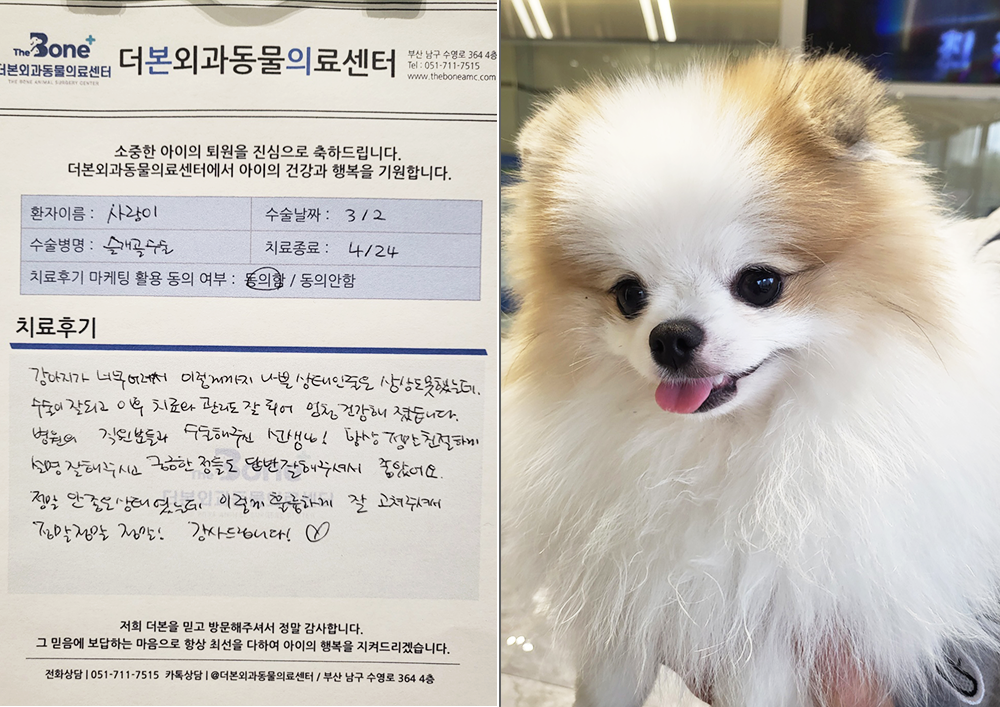 The Bone+
더본외과동물의료센터
THE BONE ANIMAL SURGERY CENTER
더본외과동물의료센터
부산 남구 수영로 364 4층
Tel : 051-711-7515
www.theboneamc.com
소중한 아이의 퇴원을 진심으로 축하드립니다.
더본외과동물의료센터에서 아이의 건강과 행복을 기원합니다.
환자이름 : 사랑이 수술날짜 : 3/2
수술병명 : 슬개골수술 치료종료 : 4/24
치료후기 마케팅 활용 동의 여부 : 동의함 / 동의안함
치료후기
강아지가 너무어려서 이렇게까지 나쁠 상태인줄은 상상도못했는데,
수술이 잘되고 이후 치료와 관리도 잘 되어 엄청 건강해 졌습니다.
병원의 직원분들과 수술해주신 선생님! 항상 정말친절하게
설명 잘해주시고 궁금한 점들도 답변잘해주셔서 좋았어요.
정말 안좋은상태였는데 이렇게 훌륭하게 잘 고쳐주셔서
정말정말 정말! 감사드립니다!
The Bone
더본외과동물의료센터
저희 더본을 믿고 방문해주셔서 정말 감사합니다.
그 믿음에 보답하는 마음으로 항상 최선을 다하여 아이의 행복을 지켜드리겠습니다.
전화상담 | 051-711-7515 카톡상담 | @더본외과동물의료센터 / 부산 남구 수영로 364 4층